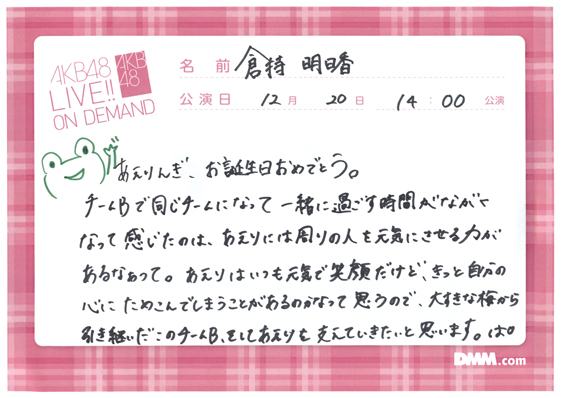 AKB48
LIVE!!
ON DEMAND
AKB
48
名前 倉持 明日香
公演日 12月 20日 14:00 公演
あえりんぎ、お誕生日おめでとう。
チームBで同じチームになって一緒に過ごす時間がながく
なって感じたのは、あえりには周りの人を元気にさせる力が
あるなぁって。あえりはいつも元気で笑顔だけど、きっと自分の
心にためこんでしまうことがあるのかなって思うので、大すきな梅から
引き継いだこのチームB、そしてあえりを支えていきたいと思います。
DMM.com